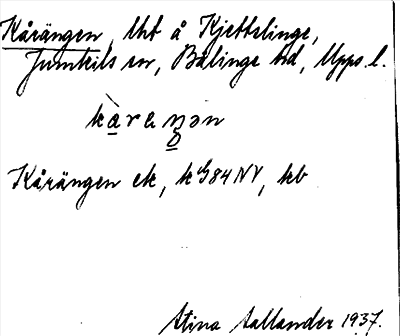 Kårängen, lht å Kjettslinge,
Jumkils sn, Bälinge hd, Upps. l.
kàræŋən
Kårängen ek, k G84NV, kb
Stina Sallander 1937.